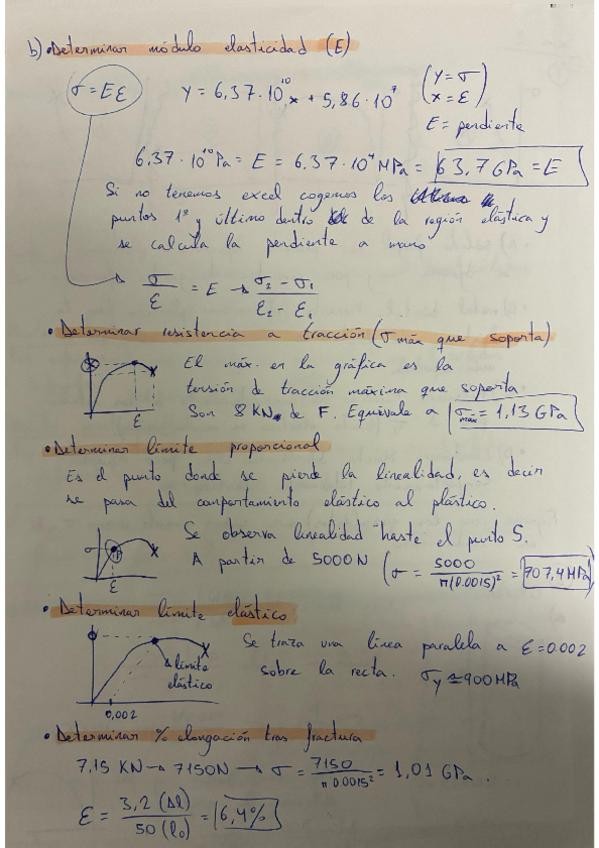 b) • Determinar módulo elasticidad (E)
σ = Eε y = 6,37·10¹⁰x + 5,86·10⁷ (y = σ
x = ε)
E = pendiente
6,37·10¹⁰ Pa = E = 6,37·10⁴ MPa = 63,7 GPa = E
Si no tenemos excel cogemos los
puntos 1º y último dentro de la región elástica y
se calcula la pendiente a mano
σ/ε = E → (σ₂ - σ₁)/(ε₂ - ε₁)
• Determinar resistencia a tracción (σ máx que soporta)
El máx. en la gráfica es la
tensión de tracción máxima que soporta
Son 8 KN de F. Equivale a σmáx = 1,13 GPa
ε
• Determinar límite proporcional
Es el punto donde se pierde la linealidad, es decir
se pasa del comportamiento elástico al plástico.
Se observa linealidad hasta el punto 5.
σ
A partir de 5000N (σ = 5000/π(0.0015)² = 707,4 MPa)
ε
• Determinar límite elástico
Se traza una línea paralela a ε = 0.002
sobre la recta. σy ≃ 900 MPa
límite
elástico
0,002
• Determinar % elongación tras fractura
7,15 KN → 7150N → σ = 7150/π 0.0015² = 1,01 GPa.
ε = 3,2 (Δl)/50 (l₀) = 6,4%